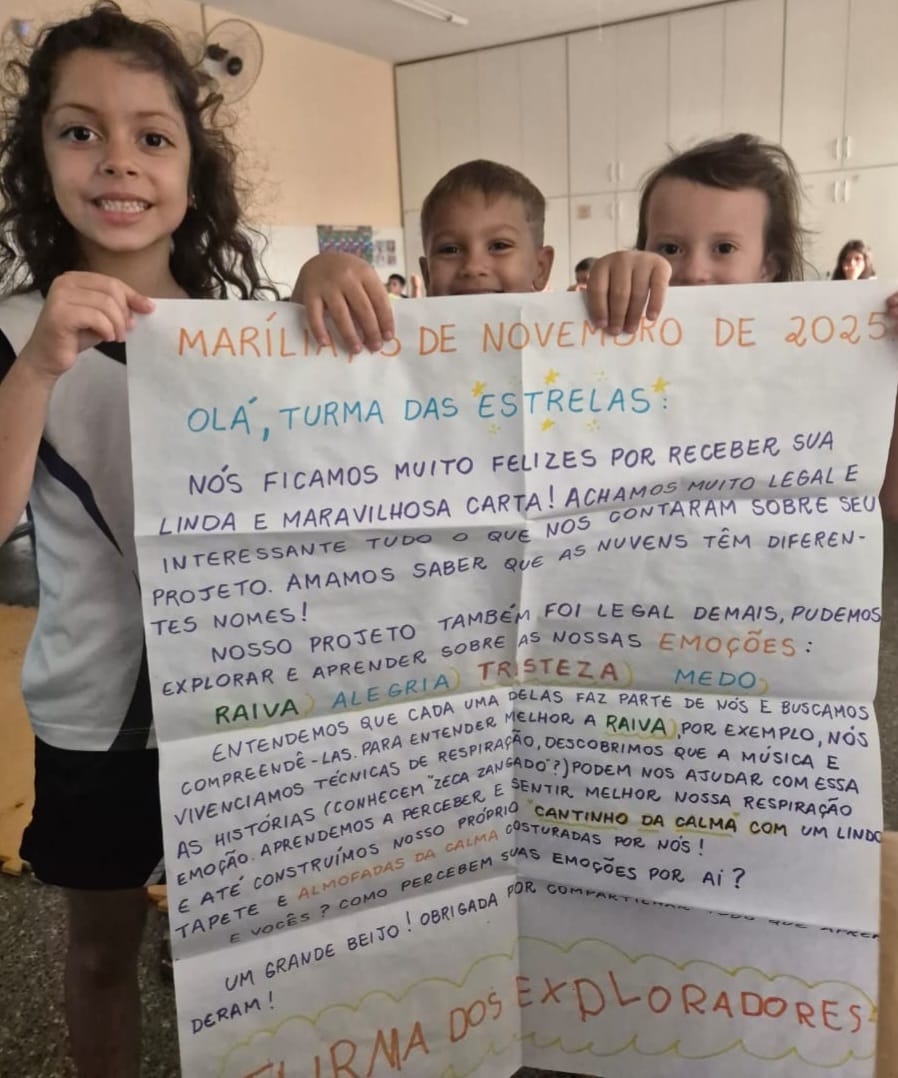 MARÍLIA, DE NOVEMBRO DE 2025
OLÁ, TURMA DAS ESTRELAS:
NÓS FICAMOS MUITO FELIZES POR RECEBER SUA
LINDA E MARAVILHOSA CARTA! ACHAMOS MUITO LEGAL E
INTERESSANTE TUDO O QUE NOS CONTARAM SOBRE SEU
PROJETO. AMAMOS SABER QUE AS NUVENS TÊM DIFEREN-
TES NOMES!
NOSSO PROJETO TAMBÉM FOI LEGAL DEMAIS, PUDEMOS
EXPLORAR E APRENDER SOBRE AS NOSSAS EMOÇÕES:
RAIVA, ALEGRIA, TRISTEZA, MEDO,
ENTENDEMOS QUE CADA UMA DELAS FAZ PARTE DE NÓS E BUSCAMOS
COMPREENDÊ-LAS. PARA ENTENDER MELHOR A RAIVA, POR EXEMPLO, NÓS
VIVENCIAMOS TÉCNICAS DE RESPIRAÇÃO, DESCOBRIMOS QUE A MÚSICA E
AS HISTÓRIAS (CONHECEM "ZECA ZANGADO"?) PODEM NOS AJUDAR COM ESSA
EMOÇÃO. APRENDEMOS A PERCEBER E SENTIR MELHOR NOSSA RESPIRAÇÃO
E ATÉ CONSTRUÍMOS NOSSO PRÓPRIO "CANTINHO DA CALMA" COM UM LINDO
TAPETE E ALMOFADAS DA CALMA COSTURADAS POR NÓS!
E VOCÊS? COMO PERCEBEM SUAS EMOÇÕES POR AÍ?
UM GRANDE BEIJO! OBRIGADA POR COMPARTILHAR TUDO QUE APREN
DERAM!
TURMA DOS EXPLORADORES